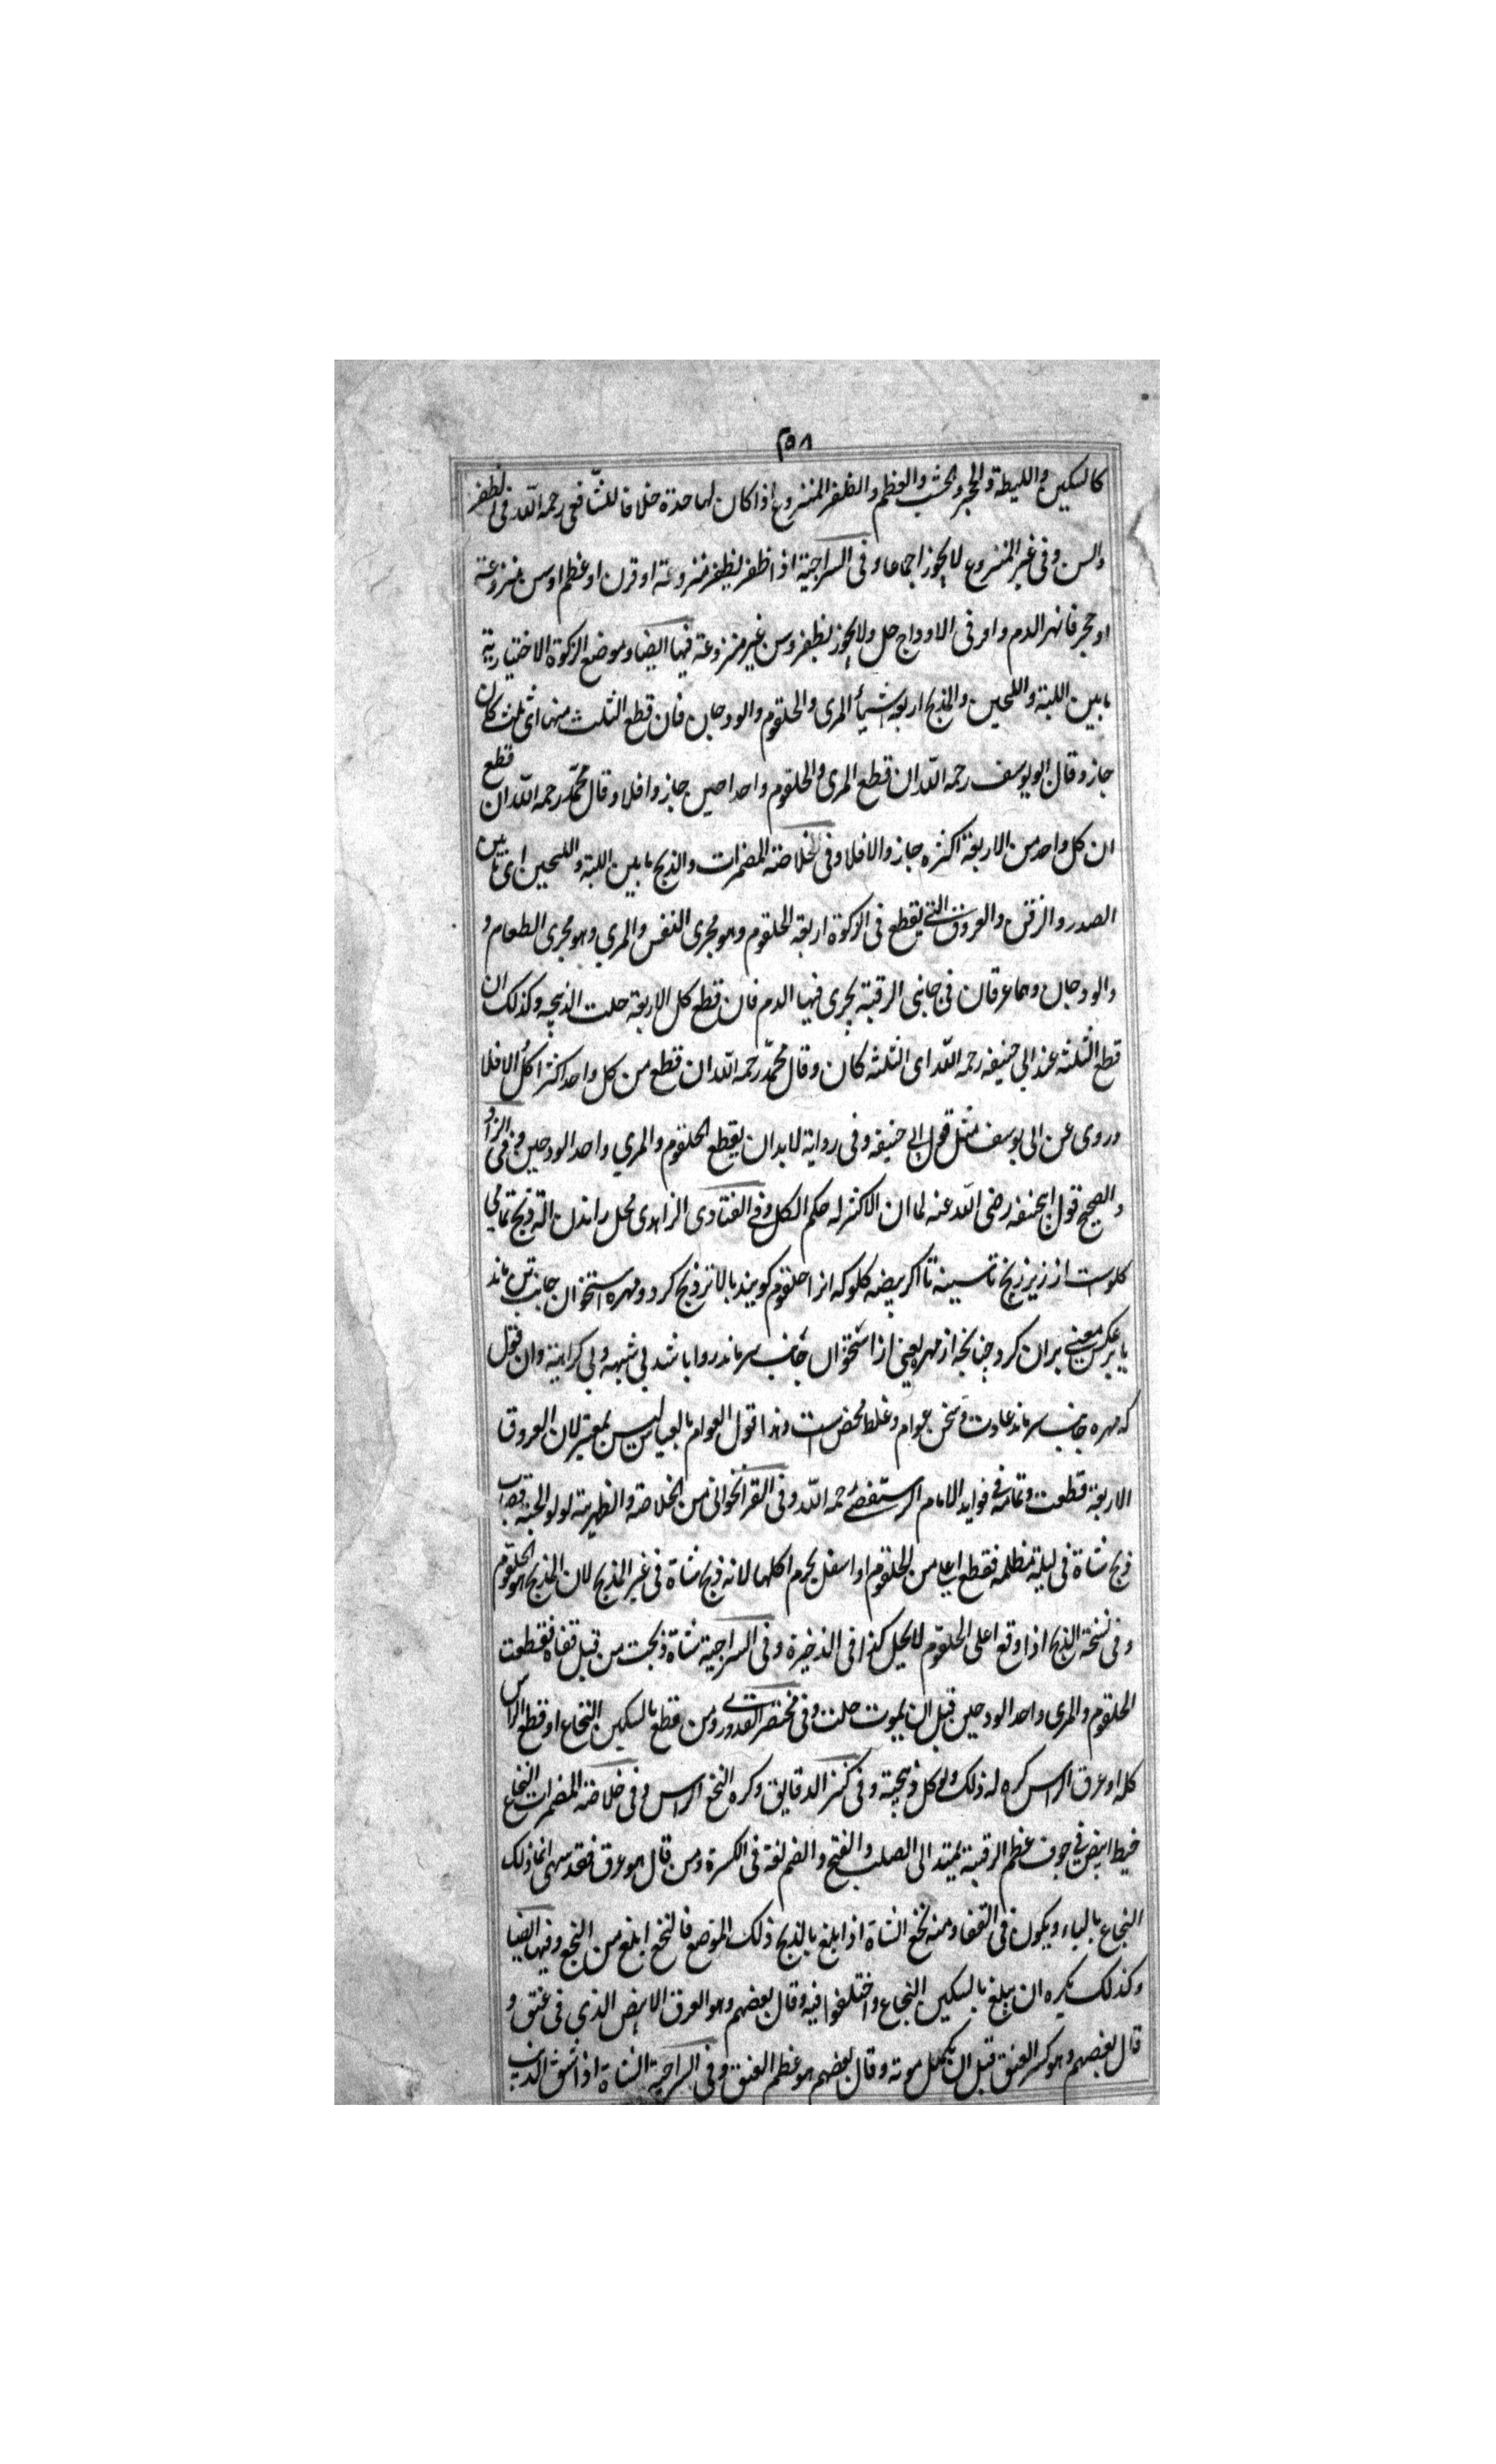 ٢٥٨
كالسكين والليطة والحجر والخشب والعظم والظفر المنزوع اذا كان لها حدة خلافا للشافعى رحمه الله فى الظفر
والسن وفى غير المنزوع لايجوز اجماعا وفى السراجية اذا ظفر بظفر منزوعة او قرن او عظم او سن منزوعة
او حجر فانهر الدم وافرى الاوداج حل ولايجوز بظفر وسن غير منزوعة فيها ايضا وموضع الزكوة الاختيارية
مابين اللبة واللحيين والمذبح اربعة اشيأ المرى والحلقوم والودجان فان قطع الثلث منها اى ثلث كان
جاز وقال ابويوسف رحمه الله ان قطع المرى والحلقوم واحد احين جاز وافلا وقال محمد رحمه الله ان قطع
ان كل واحد من الاربعة اكثره جاز والا فلا وفى خلاصة المضمرات والذبح مابين اللبة واللحيين اى مابين
الصدر والزقن والعروق التى يقطع فى الزكوة اربعة الحلقوم وهو مجرى النفس والمرى وهو مجرى الطعام و
والودجان وهما عرقان فى جانبى الرقبة يجرى فيها الدم فان قطع كل الاربعة حلت الذبيحه وكذلك ان
قطع الثلثه عند ابى حنيفه رحمه الله اى الثلثه كان وقال محمد رحمه الله ان قطع من كل واحد اكثر اكل الا فلا
وروى عن ابى يوسف مثل قول ابى حنيفه وفى رواية لابد ان يقطع الحلقوم والمرى واحد الودجين وفى الزاد
والصحيح قول ابحنيفه رضى الله عنه لما ان الاكثر له حكم الكل وفى الفتاوى الزاهدى محل راندن اله ذبح تمامى
كلوست از زير زنخ تا سينه تا اكر بيضه كلو كه انرا حلقوم كويند بالاتر ذبح كرد ومهره استخوان جانب تن ماند
يا برعكس معنى بران كرد چنانچه از مهره يعنى از استخوان جانب سر ماند روا باشد بى شبهه وبى كراهية وان قول
كه مهره جانب سر ماند عادت وسخن عوام وغلط محض است وهذا قول العوام بالعباس ليس بمعتبر لان العروق
الاربعة قطعت وتمامه فى فوايد الامام الرستغفنى رحمه الله وفى القراخوانى من الخلاصة والظهيرية لولوالجيه قصاب
ذبح شاة فى ليلة مظلمه فقطع اعلى من الحلقوم او اسفل يحرم اكلها لانه ذبح شاة فى غير المذبح لان المذبح هو الحلقوم
وفى نسخة الذبح اذا وقع اعلى الحلقوم لايحل كذا فى الذخيرة وفى السراجية شاة ذبحت من قبل قفاه فقطعت
الحلقوم والمرى واحد الودجين قبل ان يموت حلت وفى مختصر القدورى ومن قطع بالسكين النخاع او قطع الراس
كله او عرق الراس كره له ذلك ولو كل ذبيحته وفى كنز الدقايق وكره النخع الراس وفى خلاصة المضمرات النخاع
خيط ابيض فى جوف عظم الرقبة يمتد الى الصلب والفتح والضم لغة فى الكسرة ومن قال هو عرق فقد سهى انما ذلك
البخاع بالباء ويكون فى القفا ومنه بخع الشاة اذا بلغ بالذبح ذلك الموضع فالنخع ابلغ من النخع وفيها ايضا
وكذلك يكره ان يبلغ بالسكين النخاع واختلفوا فيه وقال بعضهم وهو العرق الابيض الذى فى عنق و
قال بعضهم وهو كسر العنق قبل ان يكمل موته وقال بعضهم هو عظم العنق وفى السراجية الشاة اذا شق الذئب